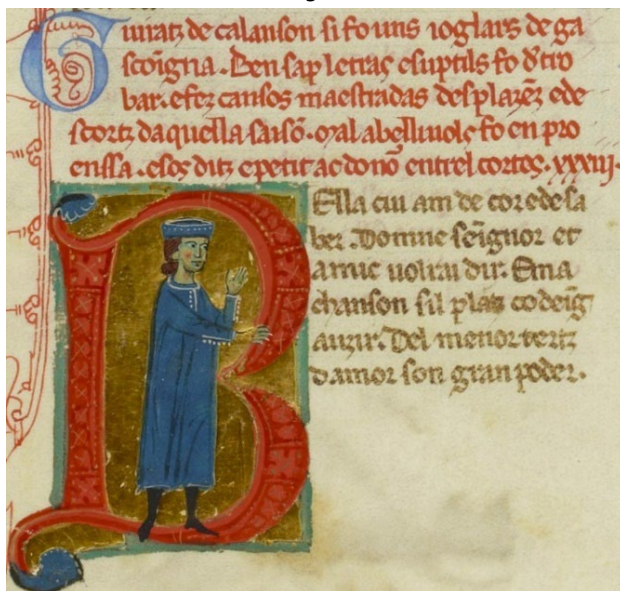 Guiratz de calanson si fo uns ioglars de ga
scoigna. Ben sap letras e suptils fo d'tro
bar. e fez cansos maestradas desplazẽz e de
scortz daquella saisõ. mal abelliuols fo en pro
enssa. e sos ditz e petit ac do nõ entrels cortes. xxxiij.
BElla cui am de cor e de sa
ber. Domne seignor et
amic uolrai dir. En ma
chanson sil platz co deig
auzir. Del menor tertz
damor son gran poder.